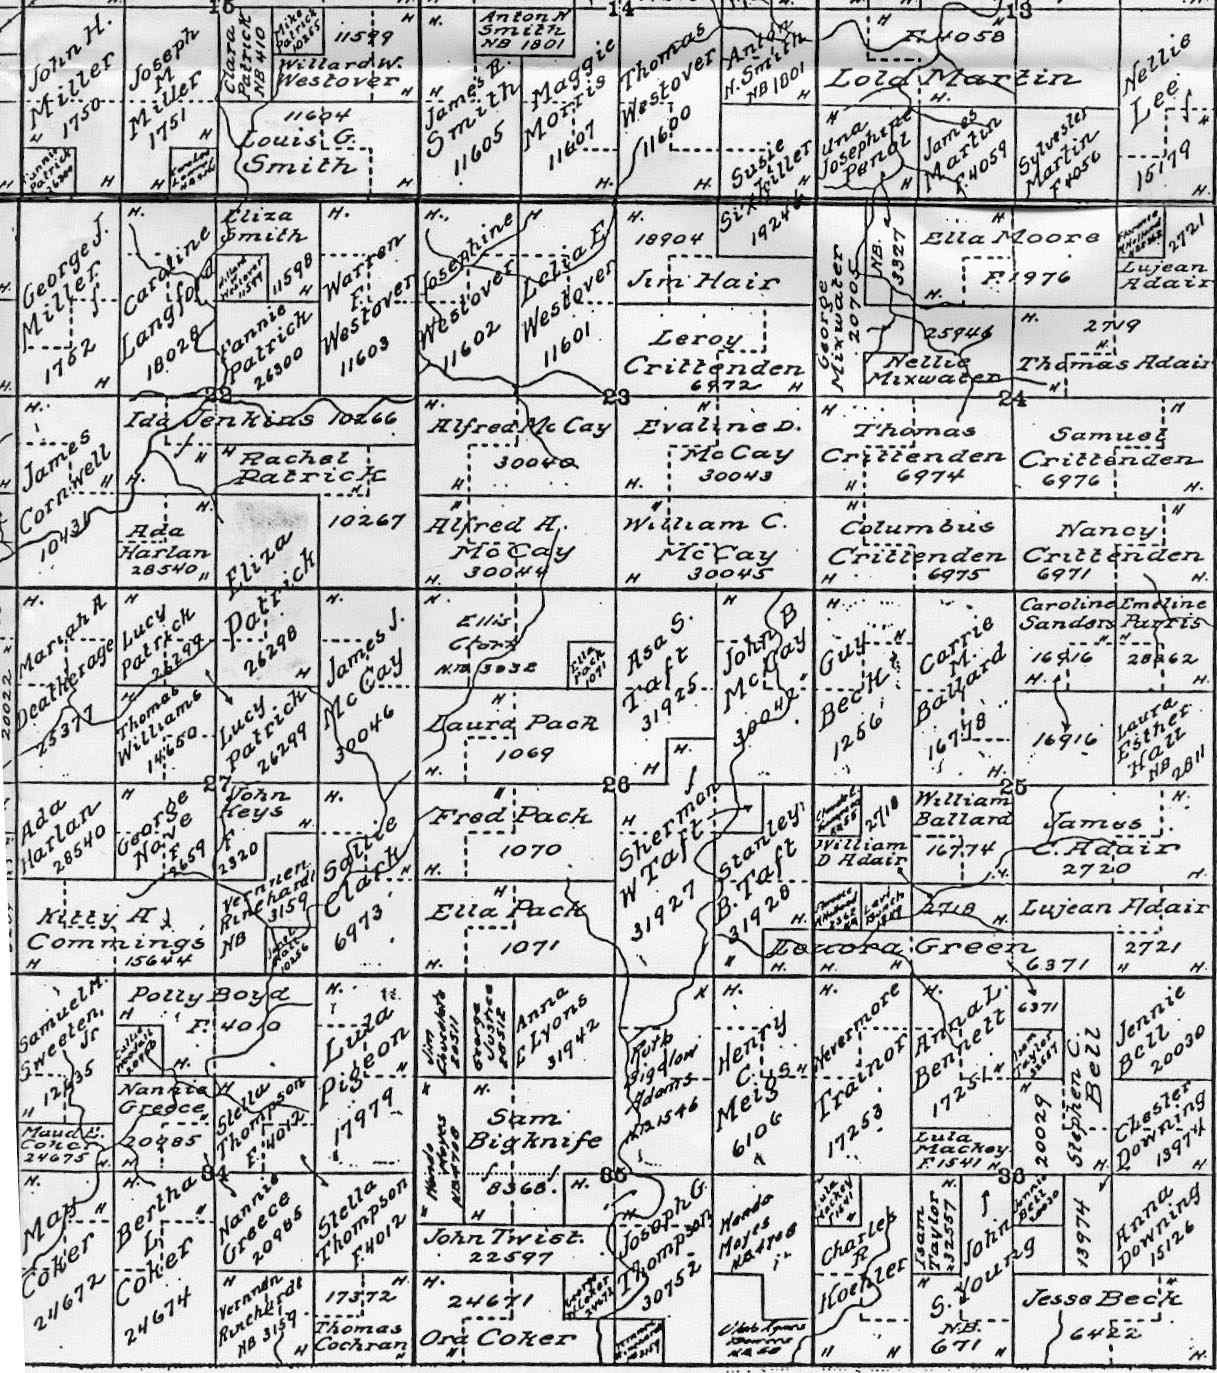 15
14
13
John H.
Miller
1750
Joseph
M
Miller
1751
Clara
Patrick
NB 410
Mike
Patrick
10265
11599
Willard W.
Westover
11604
Louis G.
Smith
Anton N
Smith
NB 1801
James R.
Smith
11605
Maggie
Morris
11607
Thomas
Westover
11600
Anton
N. Smith
NB 1801
Susie
Sixkiller
19246
F. 4058
Lola Martin
Una
Josephine
James
Martin
F. 4059
Sylvester
Martin
F. 4056
Nellie
Lee
15179
Fannie
Patrick
26300
George J.
Miller
1752
Caroline
Langford
18028
Eliza
Smith
11598
Willard
Westover
11599
Fannie
Patrick
26300
Warren
F.
Westover
11603
Josephine
Westover
11602
Lelia E.
Westover
11601
18904
Jim Hair
Leroy
Crittenden
6972
George
Mixwater
20705
NB.
3327
Ella Moore
F. 1976
2721
Lujean
Adair
25946
Nellie
Mixwater
2719
Thomas Adair
22
23
24
James
Cornwell
Ida Jenkins 10266
Rachel
Patrick
10267
Ada
Harlan
28540
Eliza
Patrick
26298
Alfred McCay
30040
Evaline D.
McCay
30043
Thomas
Crittenden
6974
Samuel
Crittenden
6976
Alfred A.
McCay
30044
William C.
McCay
30045
Columbus
Crittenden
6975
Nancy
Crittenden
6971
20022
Mariah A
Deatherage
25377
Lucy
Patrick
26299
Thomas
Williams
14650
Lucy
Patrick
26299
James J.
McCay
30046
Ellis
Clark
Ella
Pack
1071
Laura Pack
1069
Asa S.
Taft
31925
John B
McCay
30042
Guy
Beck
1256
Carrie
M.
Ballard
Caroline
Sanders
16916
16916
Emeline
Parris
28262
Laura
Esther
Hall
NB 2811
27
26
25
Ada
Harlan
28540
George
Nave
F
2659
John
Keys
F
2320
Rinehardt
3159
NB
Sallie
Clark
6973
Fred Pack
1070
Ella Pack
1071
Sherman
W Taft
31927
Stanley
B. Taft
31928
2718
William
D Adair
William
Ballard
16774
James
C. Adair
2720
2718
Lujean Adair
2721
Kitty A
Commings
15644
Louora Green
6371
Samuel M.
Sweeten,
Jr
12635
Polly Boyd
F. 4010
Nannie
Greece
20985
Stella
Thompson
F. 4012
Lula
Pigeon
17979
20511
George
Justice
20512
Anna
E Lyons
31942
Sam
Bigknife
8368
Ruth
Bigelow
Adams
NB 1546
Henry
C.
Meigs
6106
Nevermore
Trainor
17253
Anna L.
Bennett
17251
Lula
Mackey
F. 1541
6371
Sam
Taylor
20029
Stephen C.
Bell
Jennie
Bell
20030
Chesler
Downing
13974
Maud E.
Coker
24675
34
35
36
May
Coker
24672
Bertha
L.
Coker
24674
Nannie
Greece
20985
Stella
Thompson
F. 4012
Vernnan
Rinehardt
NB 3159
17372
Thomas
Cochran
John Twist
22597
24671
Ora Coker
Joseph G.
Thompson
30752
Lula
Mackey
Charles
R
Koehler
Isam
Taylor
John
S. Young
NB.
671
Jennie
Bell
13974
Anna
Downing
15126
Jesse Beck
6422